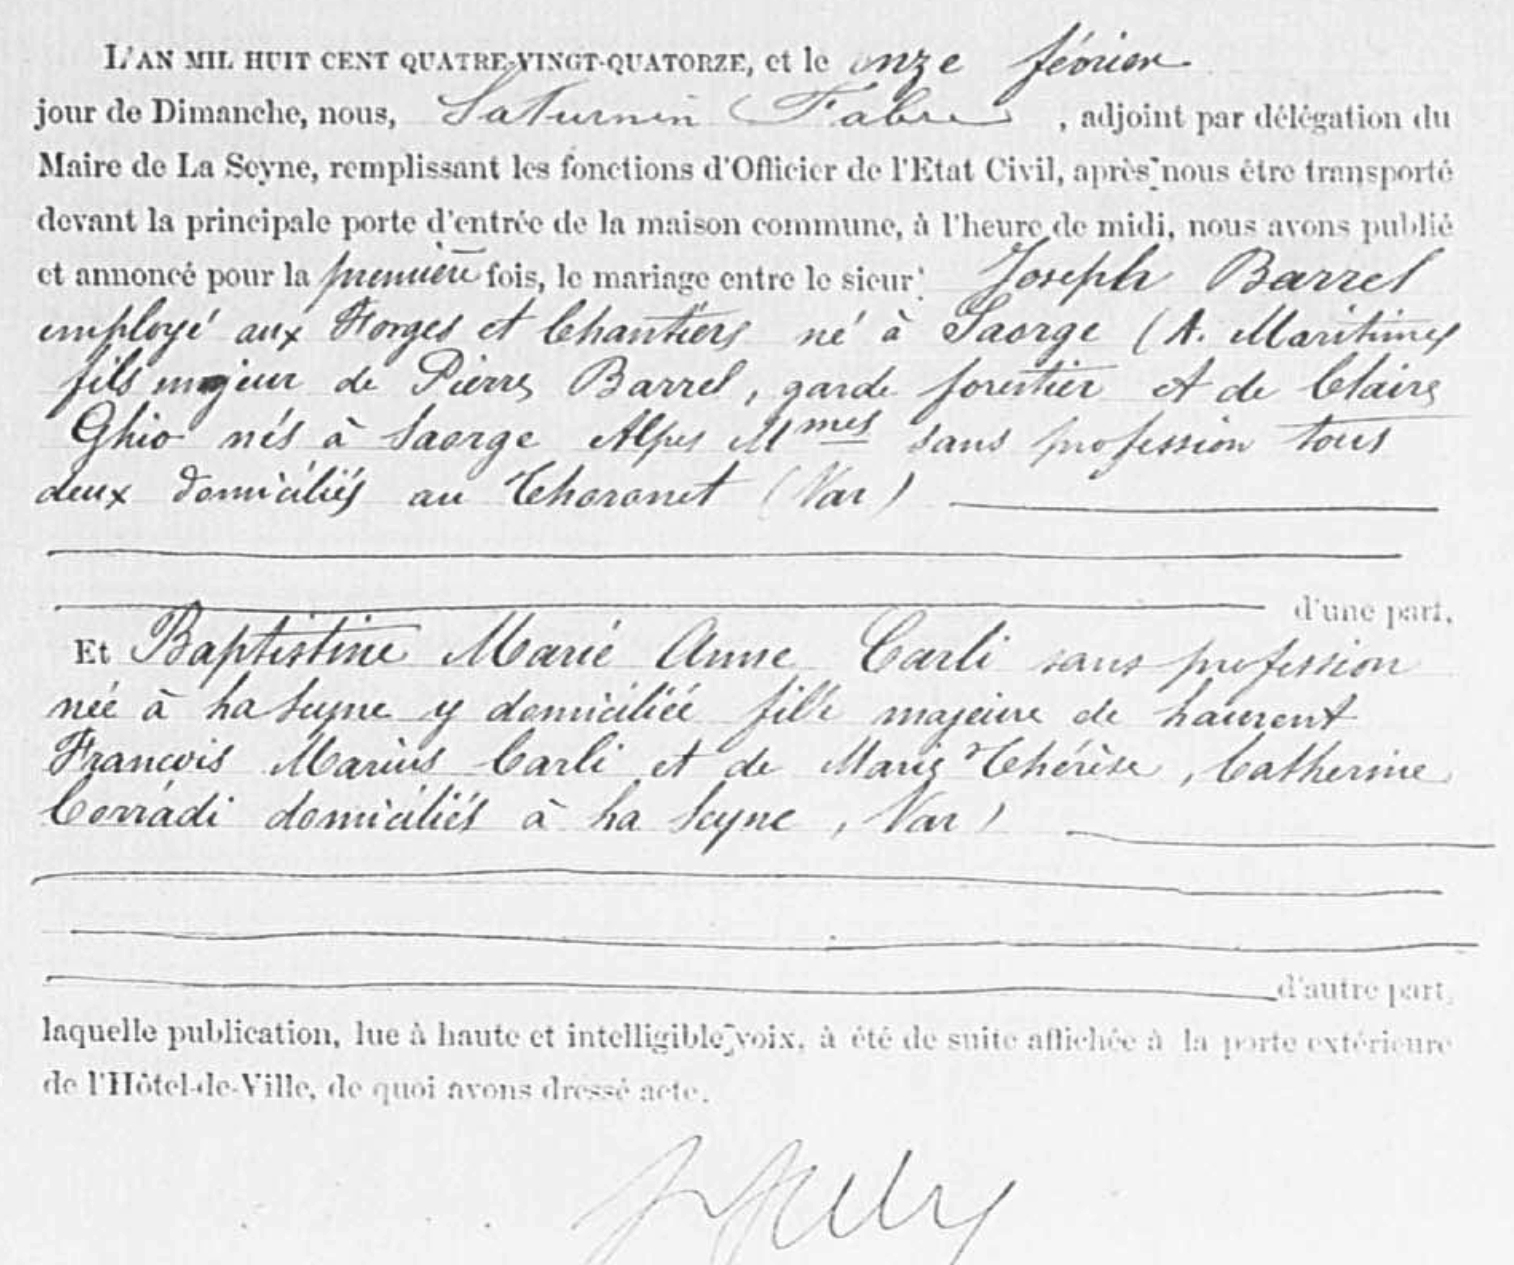 L'AN MIL HUIT CENT QUATRE-VINGT-QUATORZE, et le onze février
jour de Dimanche, nous, Saturnin Fabre, adjoint par délégation du
Maire de La Seyne, remplissant les fonctions d'Officier de l'Etat Civil, après nous être transporté
devant la principale porte d'entrée de la maison commune, à l'heure de midi, nous avons publié
et annoncé pour la première fois, le mariage entre le sieur Joseph Barrel
employé aux Forges et Chantiers né à Saorge (A. Maritimes
fils majeur de Pierre Barrel, garde forestier et de Claire
Ghio nés à Saorge Alpes Mmes sans profession tous
deux domiciliés au Thoronet (Var)
d'une part,
Et Baptistine Marie Anne Carli sans profession
née à La Seyne y domiciliée fille majeure de Laurent
François Marius Carli et de Marie Thérèse, Catherine
Corradi domiciliés à La Seyne, Var)
d'autre part,
laquelle publication, lue à haute et intelligible voix, à été de suite affichée à la porte extérieure
de l'Hôtel-de-Ville, de quoi avons dressé acte.